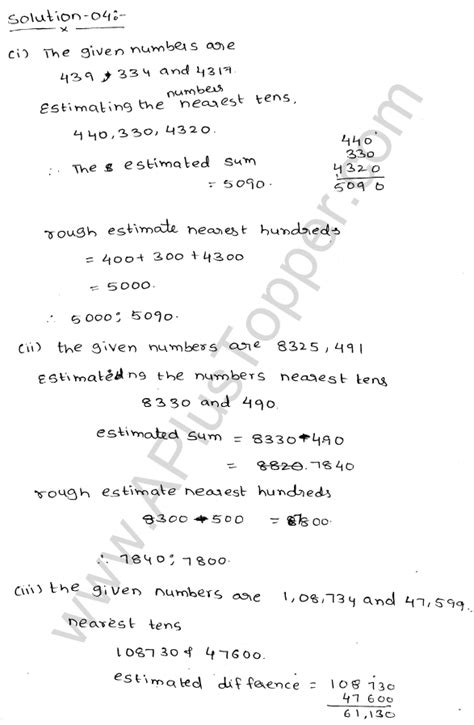 Solution-04:-
(i) The given numbers are
439, 334 and 4317.
Estimating the numbers nearest tens.
440, 330, 4320.
∴ The estimated sum
= 5090.
440
330
4320
5090
rough estimate nearest hundreds
= 400+ 300 +4300
= 5000.
∴ 5000; 5090.
(ii) the given numbers are 8325, 491
Estimateding the numbers nearest tens
8330 and 490.
estimated sum = 8330-490
= 8820. 7840
rough estimate nearest hundreds
8300 - 500 = 7800.
∴ 7840; 7800.
(iii) the given numbers are 1,08,734 and 47,599.
nearest tens
108730 & 47600.
estimated difference = 108730
47600
61,130
www.APlusTopper.com